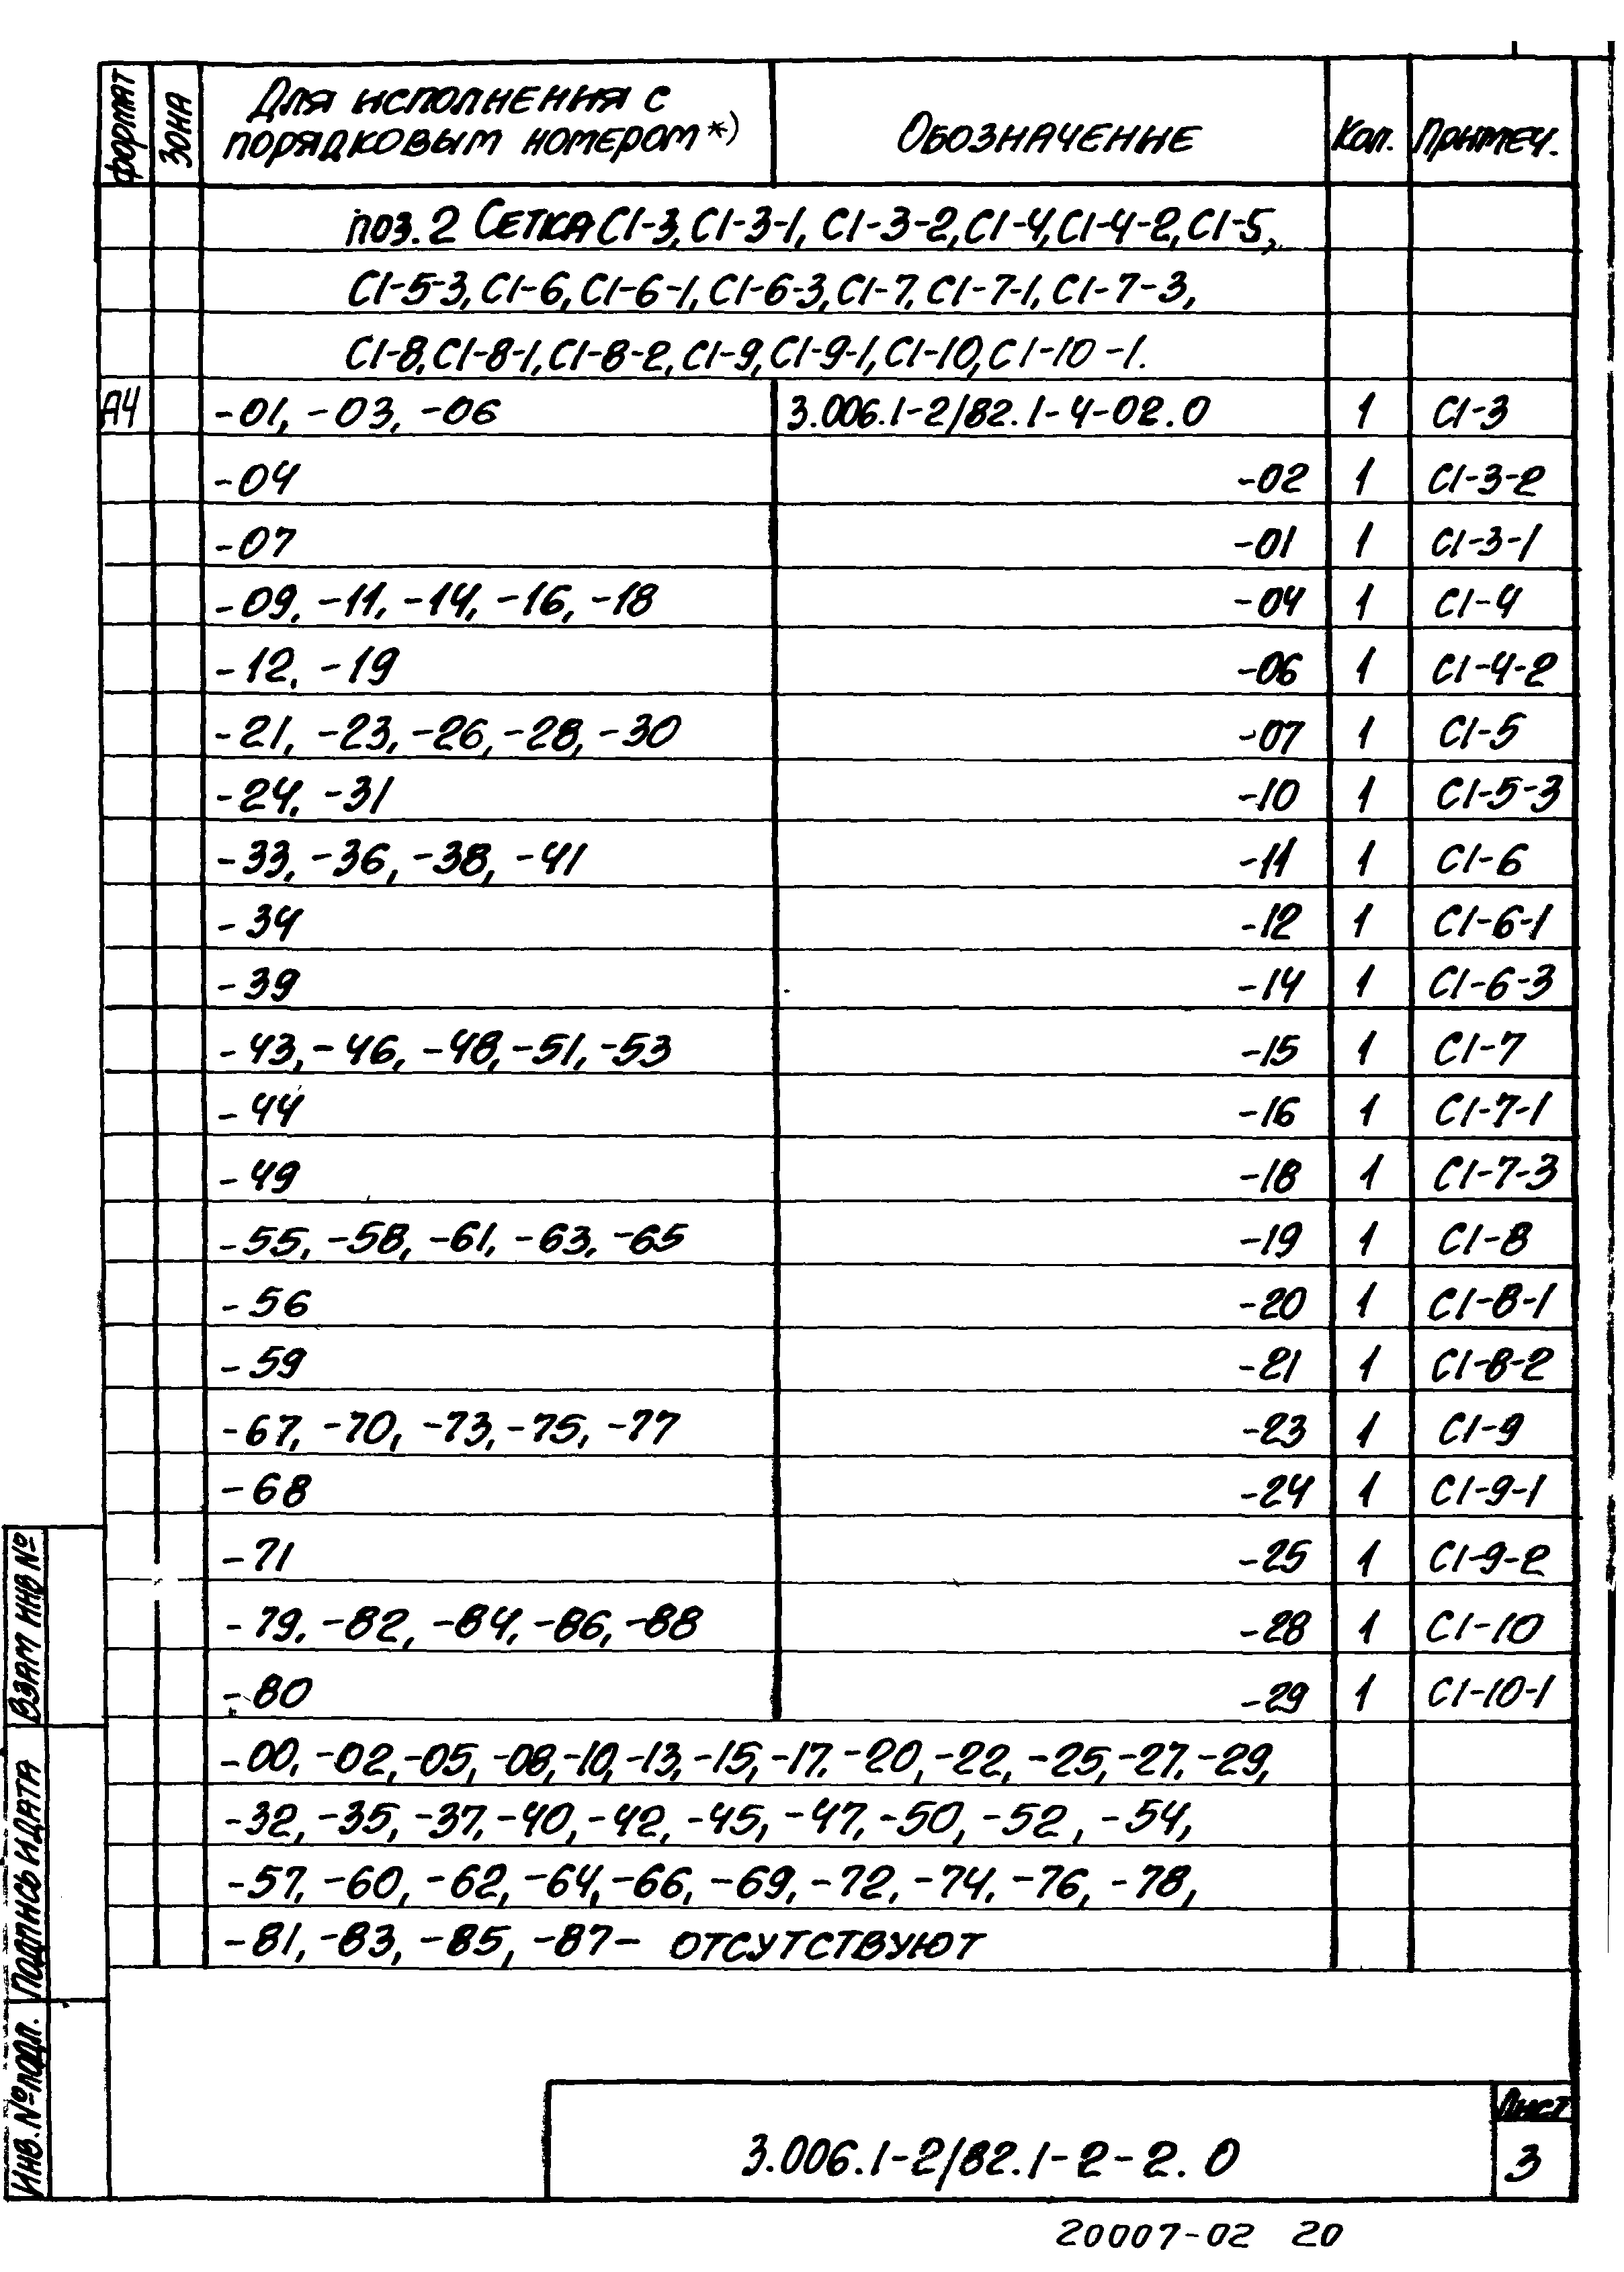 формат
зона
Для исполнения с
порядковым номером *)
Обозначение
Кол.
Примеч.
поз. 2 Сетка С1-3, С1-3-1, С1-3-2, С1-4, С1-4-2, С1-5,
С1-5-3, С1-6, С1-6-1, С1-6-3, С1-7, С1-7-1, С1-7-3,
С1-8, С1-8-1, С1-8-2, С1-9, С1-9-1, С1-10, С1-10-1.
А4 -01, -03, -06 3.006.1-2/82.1-4-02.0 1 С1-3
-04 -02 1 С1-3-2
-07 -01 1 С1-3-1
-09, -11, -14, -16, -18 -04 1 С1-4
-12, -19 -06 1 С1-4-2
-21, -23, -26, -28, -30 -07 1 С1-5
-24, -31 -10 1 С1-5-3
-33, -36, -38, -41 -11 1 С1-6
-34 -12 1 С1-6-1
-39 -14 1 С1-6-3
-43, -46, -48, -51, -53 -15 1 С1-7
-44 -16 1 С1-7-1
-49 -18 1 С1-7-3
-55, -58, -61, -63, -65 -19 1 С1-8
-56 -20 1 С1-8-1
-59 -21 1 С1-8-2
-67, -70, -73, -75, -77 -23 1 С1-9
-68 -24 1 С1-9-1
-71 -25 1 С1-9-2
-79, -82, -84, -86, -88 -28 1 С1-10
-80 -29 1 С1-10-1
-00, -02, -05, -08, -10, -13, -15, -17, -20, -22, -25, -27, -29,
-32, -35, -37, -40, -42, -45, -47, -50, -52, -54,
-57, -60, -62, -64, -66, -69, -72, -74, -76, -78,
-81, -83, -85, -87 - отсутствуют
Взам инв №
Подпись и дата
Инв. № подл.
3.006.1-2/82.1-2-2.0
Лист
3
20007-02 20